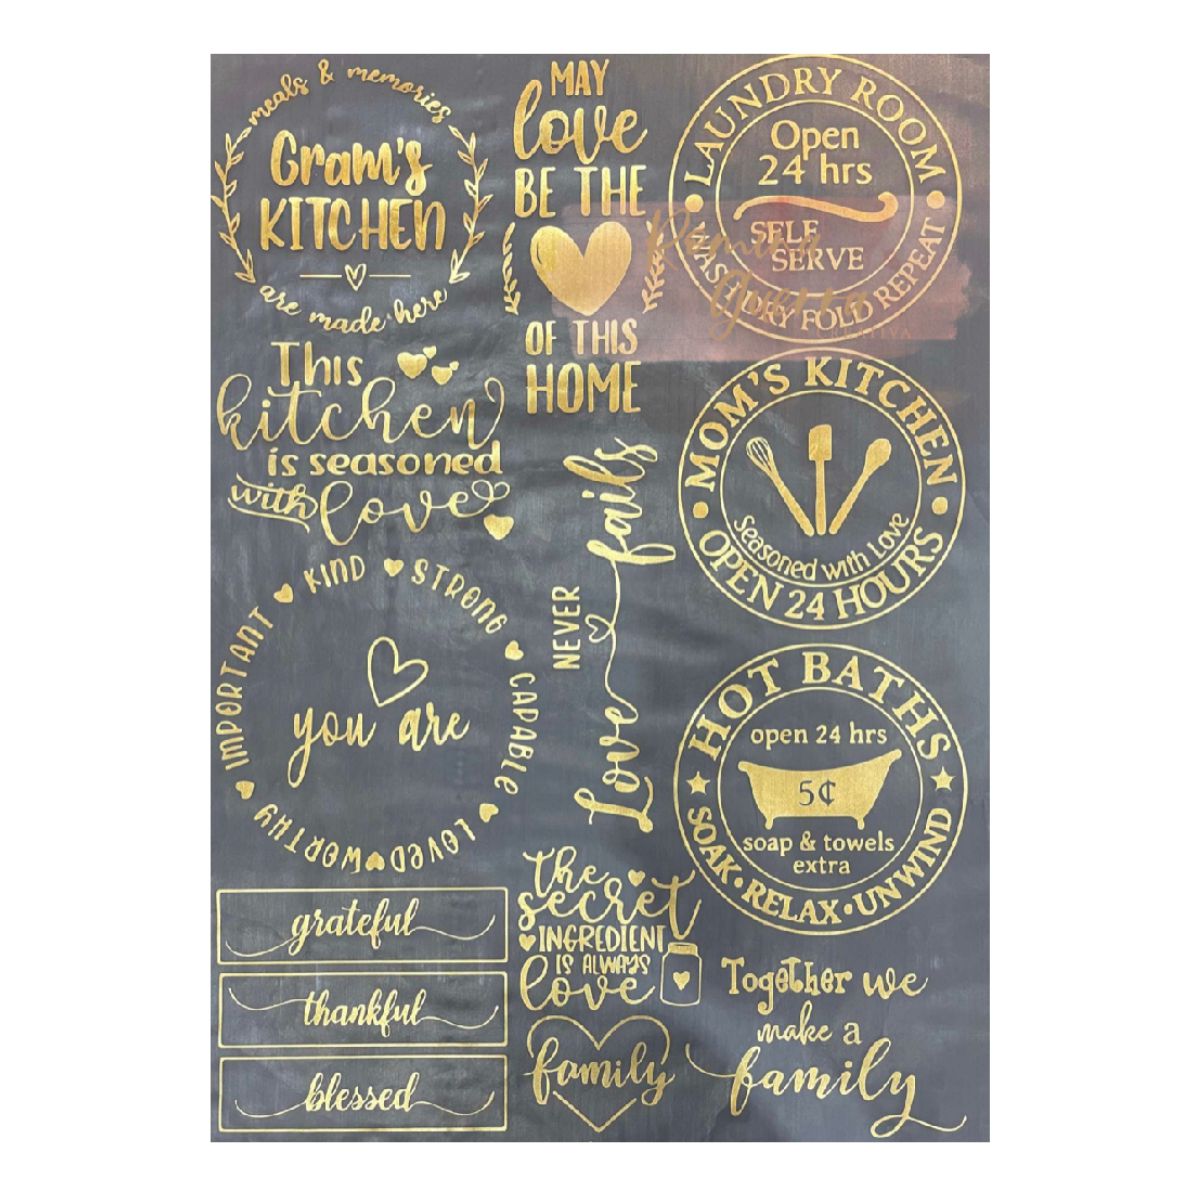 meals & memories
Gram's
KITCHEN
are made here
MAY
love
BE THE
OF THIS
HOME
LAUNDRY ROOM
Open
24 hrs
SELF
SERVE
WASH DRY FOLD REPEAT
Romina
Guerra
CREATIVA
This
kitchen
is seasoned
with love
MOM'S KITCHEN
Seasoned with Love
OPEN 24 HOURS
NEVER fails
Love
IMPORTANT KIND STRONG CAPABLE LOVED WORTHY
you are
HOT BATHS
open 24 hrs
5¢
soap & towels
extra
SOAK • RELAX • UNWIND
grateful
thankful
blessed
the
secret
INGREDIENT
IS ALWAYS
love
family
Together we
make a
family